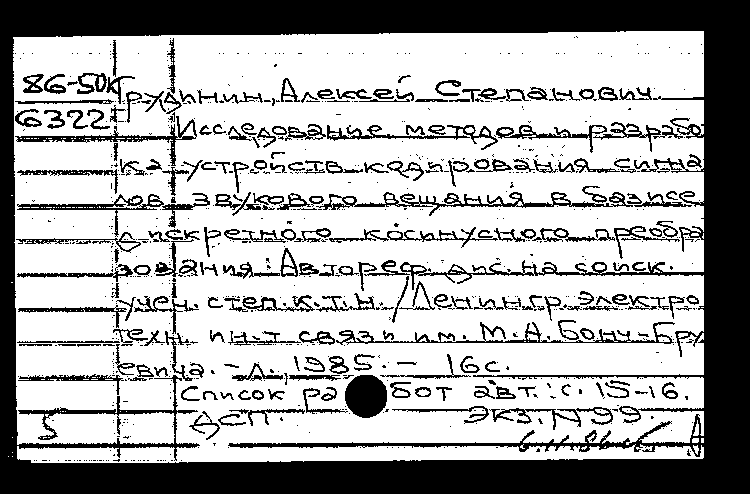 86-50К
6322
Грудинин, Алексей Степанович.
Исследование методов и разработ
ка устройств кодирования сигна
лов звукового вещания в базисе
дискретного косинусного преобра
зования: Автореф. дис. на соиск.
учен. степ. к.т.н. / Ленингр. электро
техн. ин-т связи им. М.А. Бонч-Бру
евича. - Л., 1985. - 16 с.
Список работ авт.: с. 15-16.
5 ДСП. Экз. N 99.
6.11.86